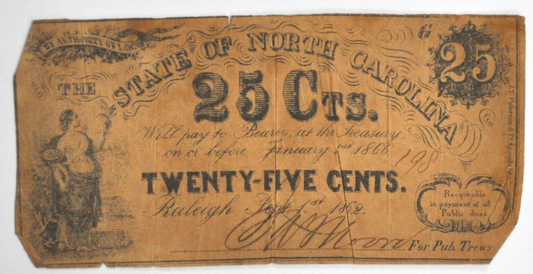 BY AUTHORITY OF LAW.
G
25
THE STATE OF NORTH CAROLINA
25 CTS.
Will pay to Bearer, at the Treasury
on or before January 1st 1866
198
TWENTY-FIVE CENTS.
Raleigh Sept. 1st 1862.
Receivable
in payment of all
Public dues
For Pub. Treas